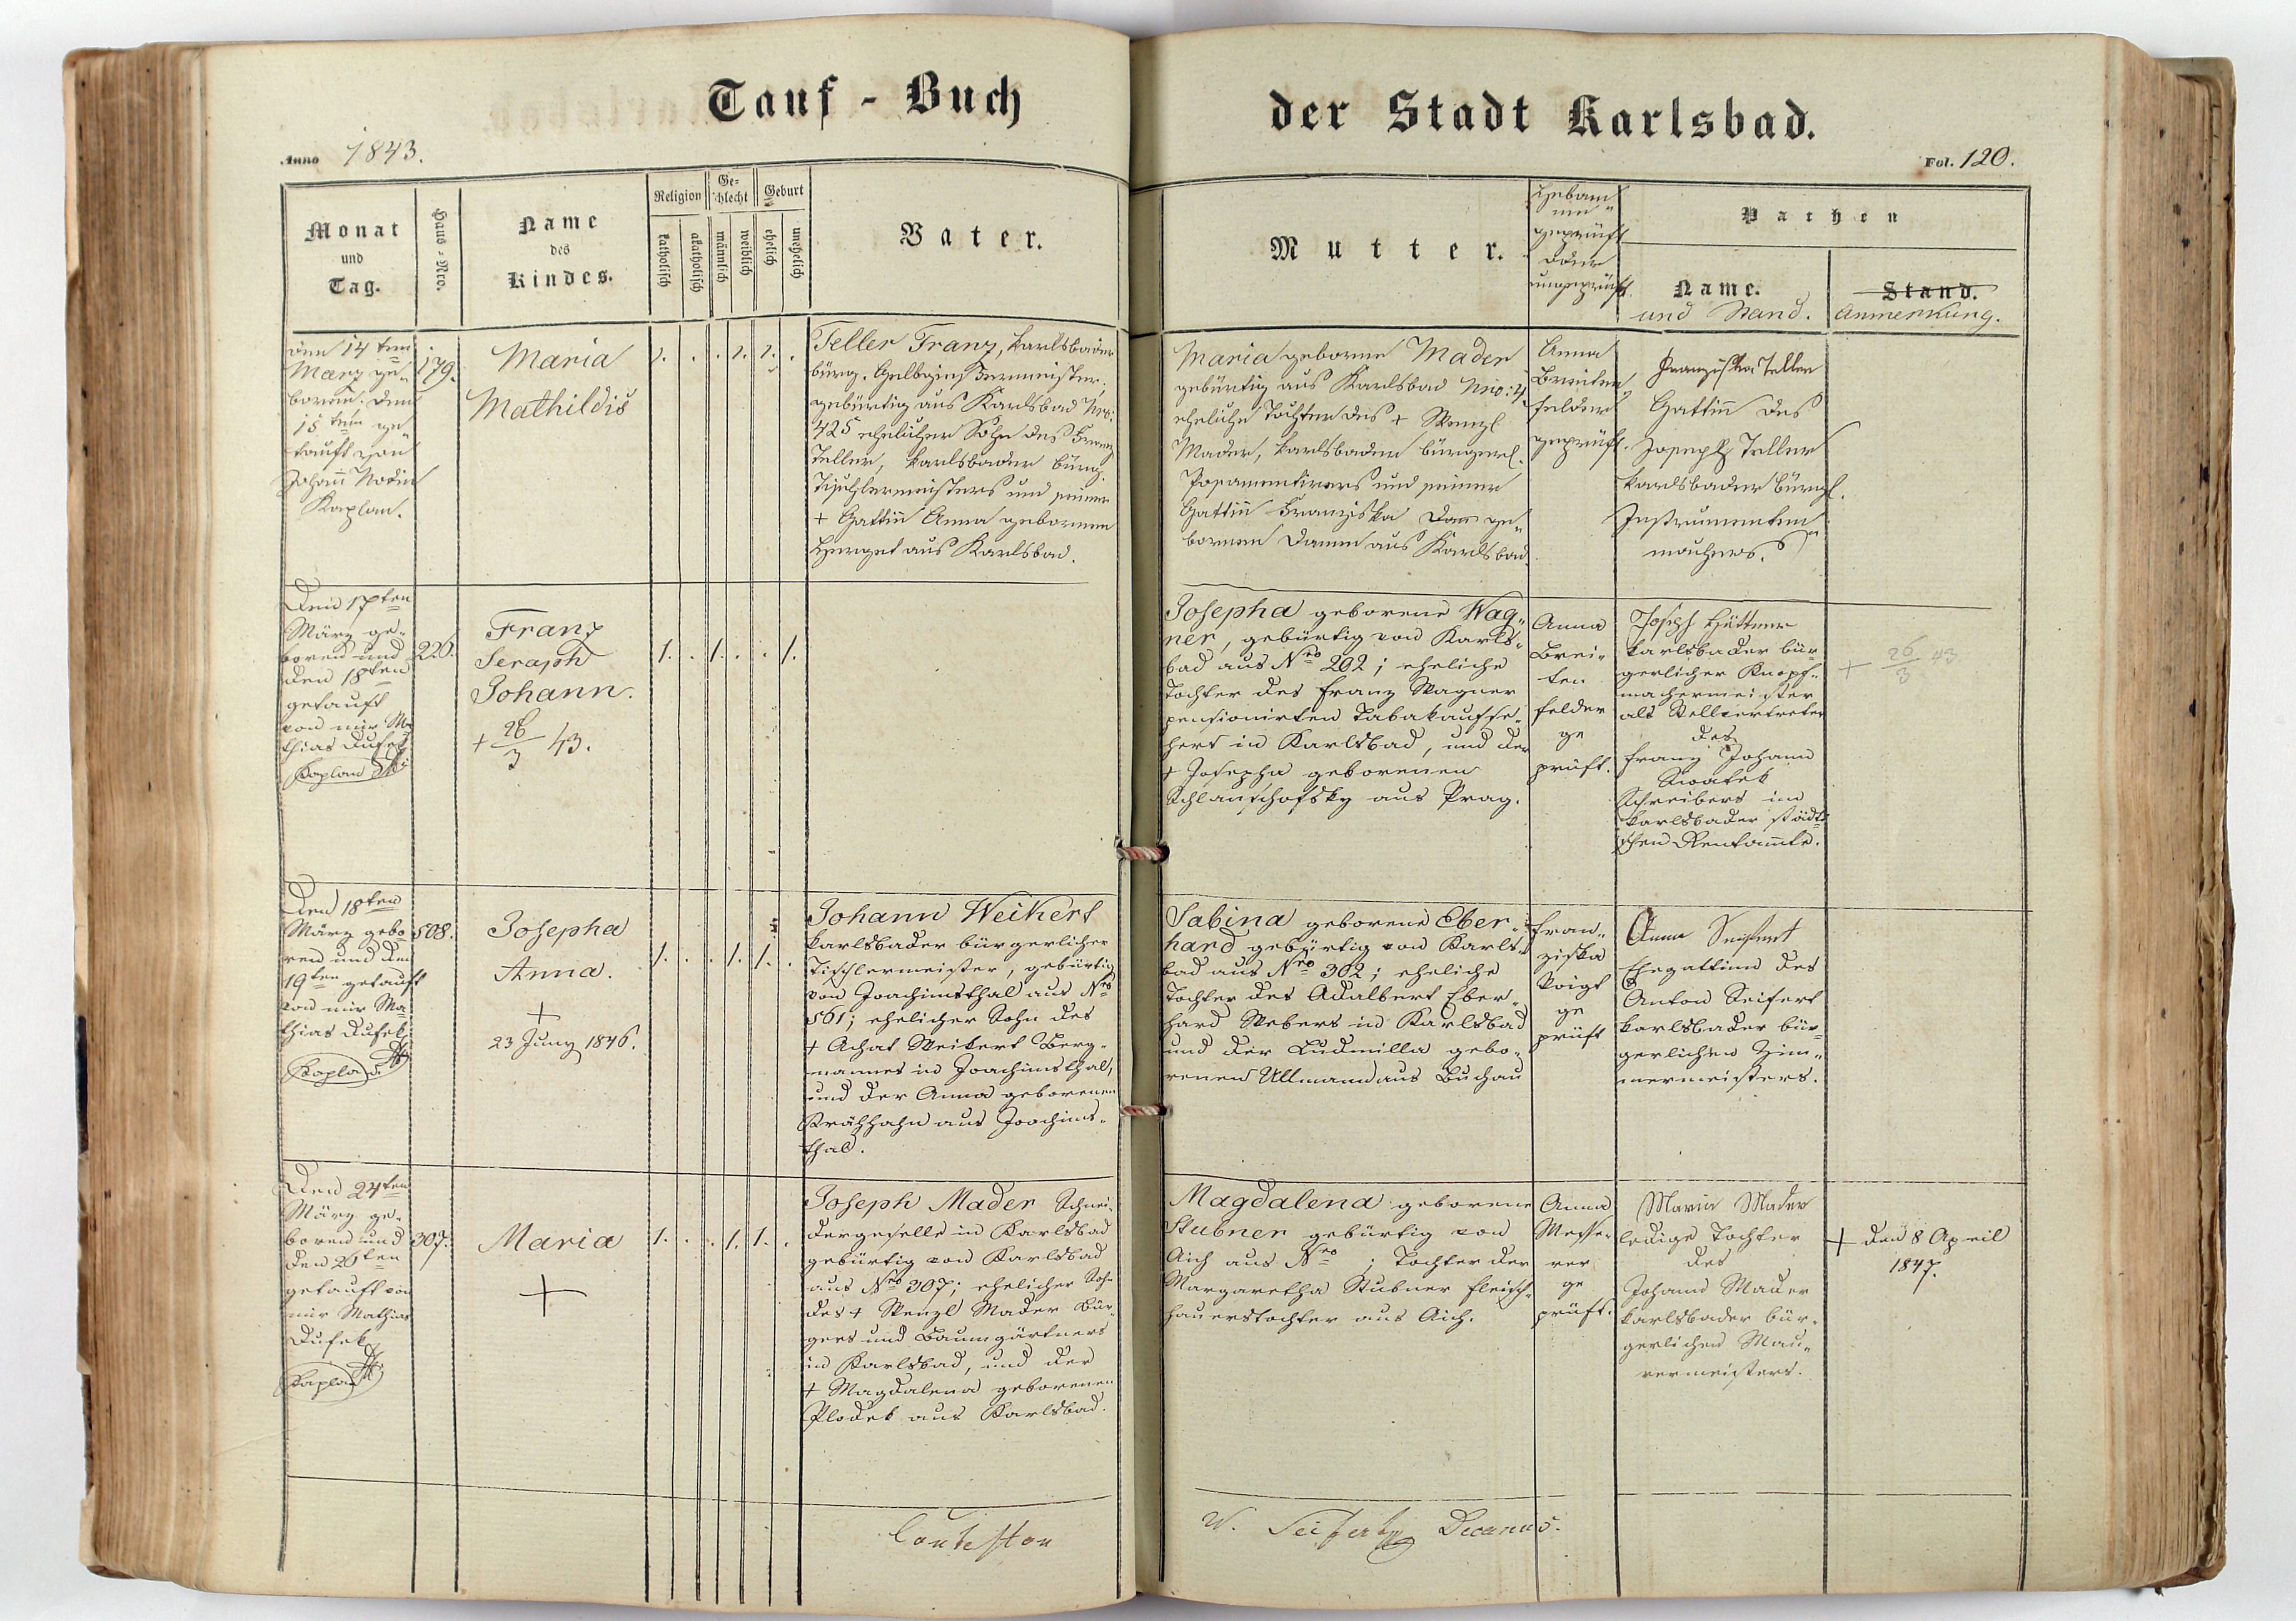 Tauf - Buch
der Stadt Karlsbad.
Anno 1843.
Fol. 120.
Monat
und
Tag.
Haus - Nro.
Name
des
Kindes.
Religion
katholisch
akatholisch
Ge=
schlecht
männlich
weiblich
Geburt
ehelich
unehelich
Vater.
Mutter.
Hebam
me
geprüft
oder
ungeprüft.
Pathen
Name.
und Stand.
Stand.
Anmerkung.
den 14ten
März ge-
boren. den
15ten ge-
tauft von
Johann
Kaplan.
179.
Maria
Mathildis
1. . . 1. 1. .
Teller Franz, Karlsbader
bürg. Gelbgießermeister,
gebürtig aus Karlsbad Nro.
425 ehelicher Sohn des Franz
Teller, Karlsbader bürg.
Tischlermeisters und seiner
+ Gattin Anna gebornen
Herget aus Karlsbad.
Maria geborne Mader
gebürtig aus Karlsbad Nro: 4
eheliche Tochter des + Wenzl
Mader, Karlsbader bürgerl.
Posamentirers und seiner
Gattin Franziska Dam ge-
bornen Damm aus Karlsbad.
Anna
Breiten
felder
geprüft.
Franziska Teller
Gattin des
Joseph Teller
Karlsbader bürgl.
Instrumenten
machers.
Den 17ten
März ge-
boren und
den 18ten
getauft
von mir Ma
thias Dufek
Kaplan
226.
Franz
Seraph
Johann.
+ 26/3 43.
1. . 1. . . 1.
Josepha geborene Wag-
ner, gebürtig von Karls-
bad aus Nro 292; eheliche
Tochter des Franz Wagner
pensionirten Tabakaufse-
hers in Karlsbad, und der
+ Josepha geborenen
Schlanschofsky aus Prag.
Anna
Brei-
ten
felder
ge
prüft.
Joseph Hüttner
karlsbader bür-
gerlicher Knopf-
machermeister
als Stellvertreter
des
Franz Johann
Swatek
Schreibers im
karlsbader städti
schen Rentamte.
+ 26/3 43
Den 18ten
März gebo
ren und den
19ten getauft
von mir Ma
thias Dufek
Kaplan.
508.
Josepha
Anna.
+
23 Juny 1846.
1. . . 1. 1. .
Johann Weikert
karlsbader bürgerlicher
Tischlermeister, gebürtig
von Joachimsthal aus Nro
561; ehelicher Sohn des
+ Achat Weikert Berg-
mannes in Joachimsthal,
und der Anna geborenen
Krähhahn aus Joachims-
thal.
Sabina geborene Eber-
hard gebürtig von Karls-
bad aus Nro 302; eheliche
Tochter des Adalbert Eber-
hard Webers in Karlsbad
und der Ludmilla gebo-
renen Ullmann aus Buchau
Fran-
ziska
Voigt
ge
prüft
Anna Seifert
Ehegattinn des
Anton Seifert
karlsbader bür-
gerlichen Zim-
mermeisters.
Den 24ten
März ge-
boren und
den 26ten
getauft von
mir Mathias
Dufek
Kaplan
307.
Maria
+
1. . . 1. 1. .
Joseph Mader Schnei-
dergeselle in Karlsbad
gebürtig von Karlsbad
aus Nro 307; ehelicher Sohn
des + Wenzl Mader Bür-
gers und Baumgärtners
in Karlsbad, und der
+ Magdalena geborenen
Plodek aus Karlsbad.
Magdalena geborene
Stubner gebürtig von
Aich aus Nro ; Tochter der
Margaretha Stubner Fleisch-
hauerstochter aus Aich.
Anna
Messe-
rer
ge
prüft.
Maria Mader
ledige Tochter
des
Johann Mader
karlsbader bür-
gerlichen Mau-
rermeisters.
+ den 8 April
1847.
W. Seifert Decanus.